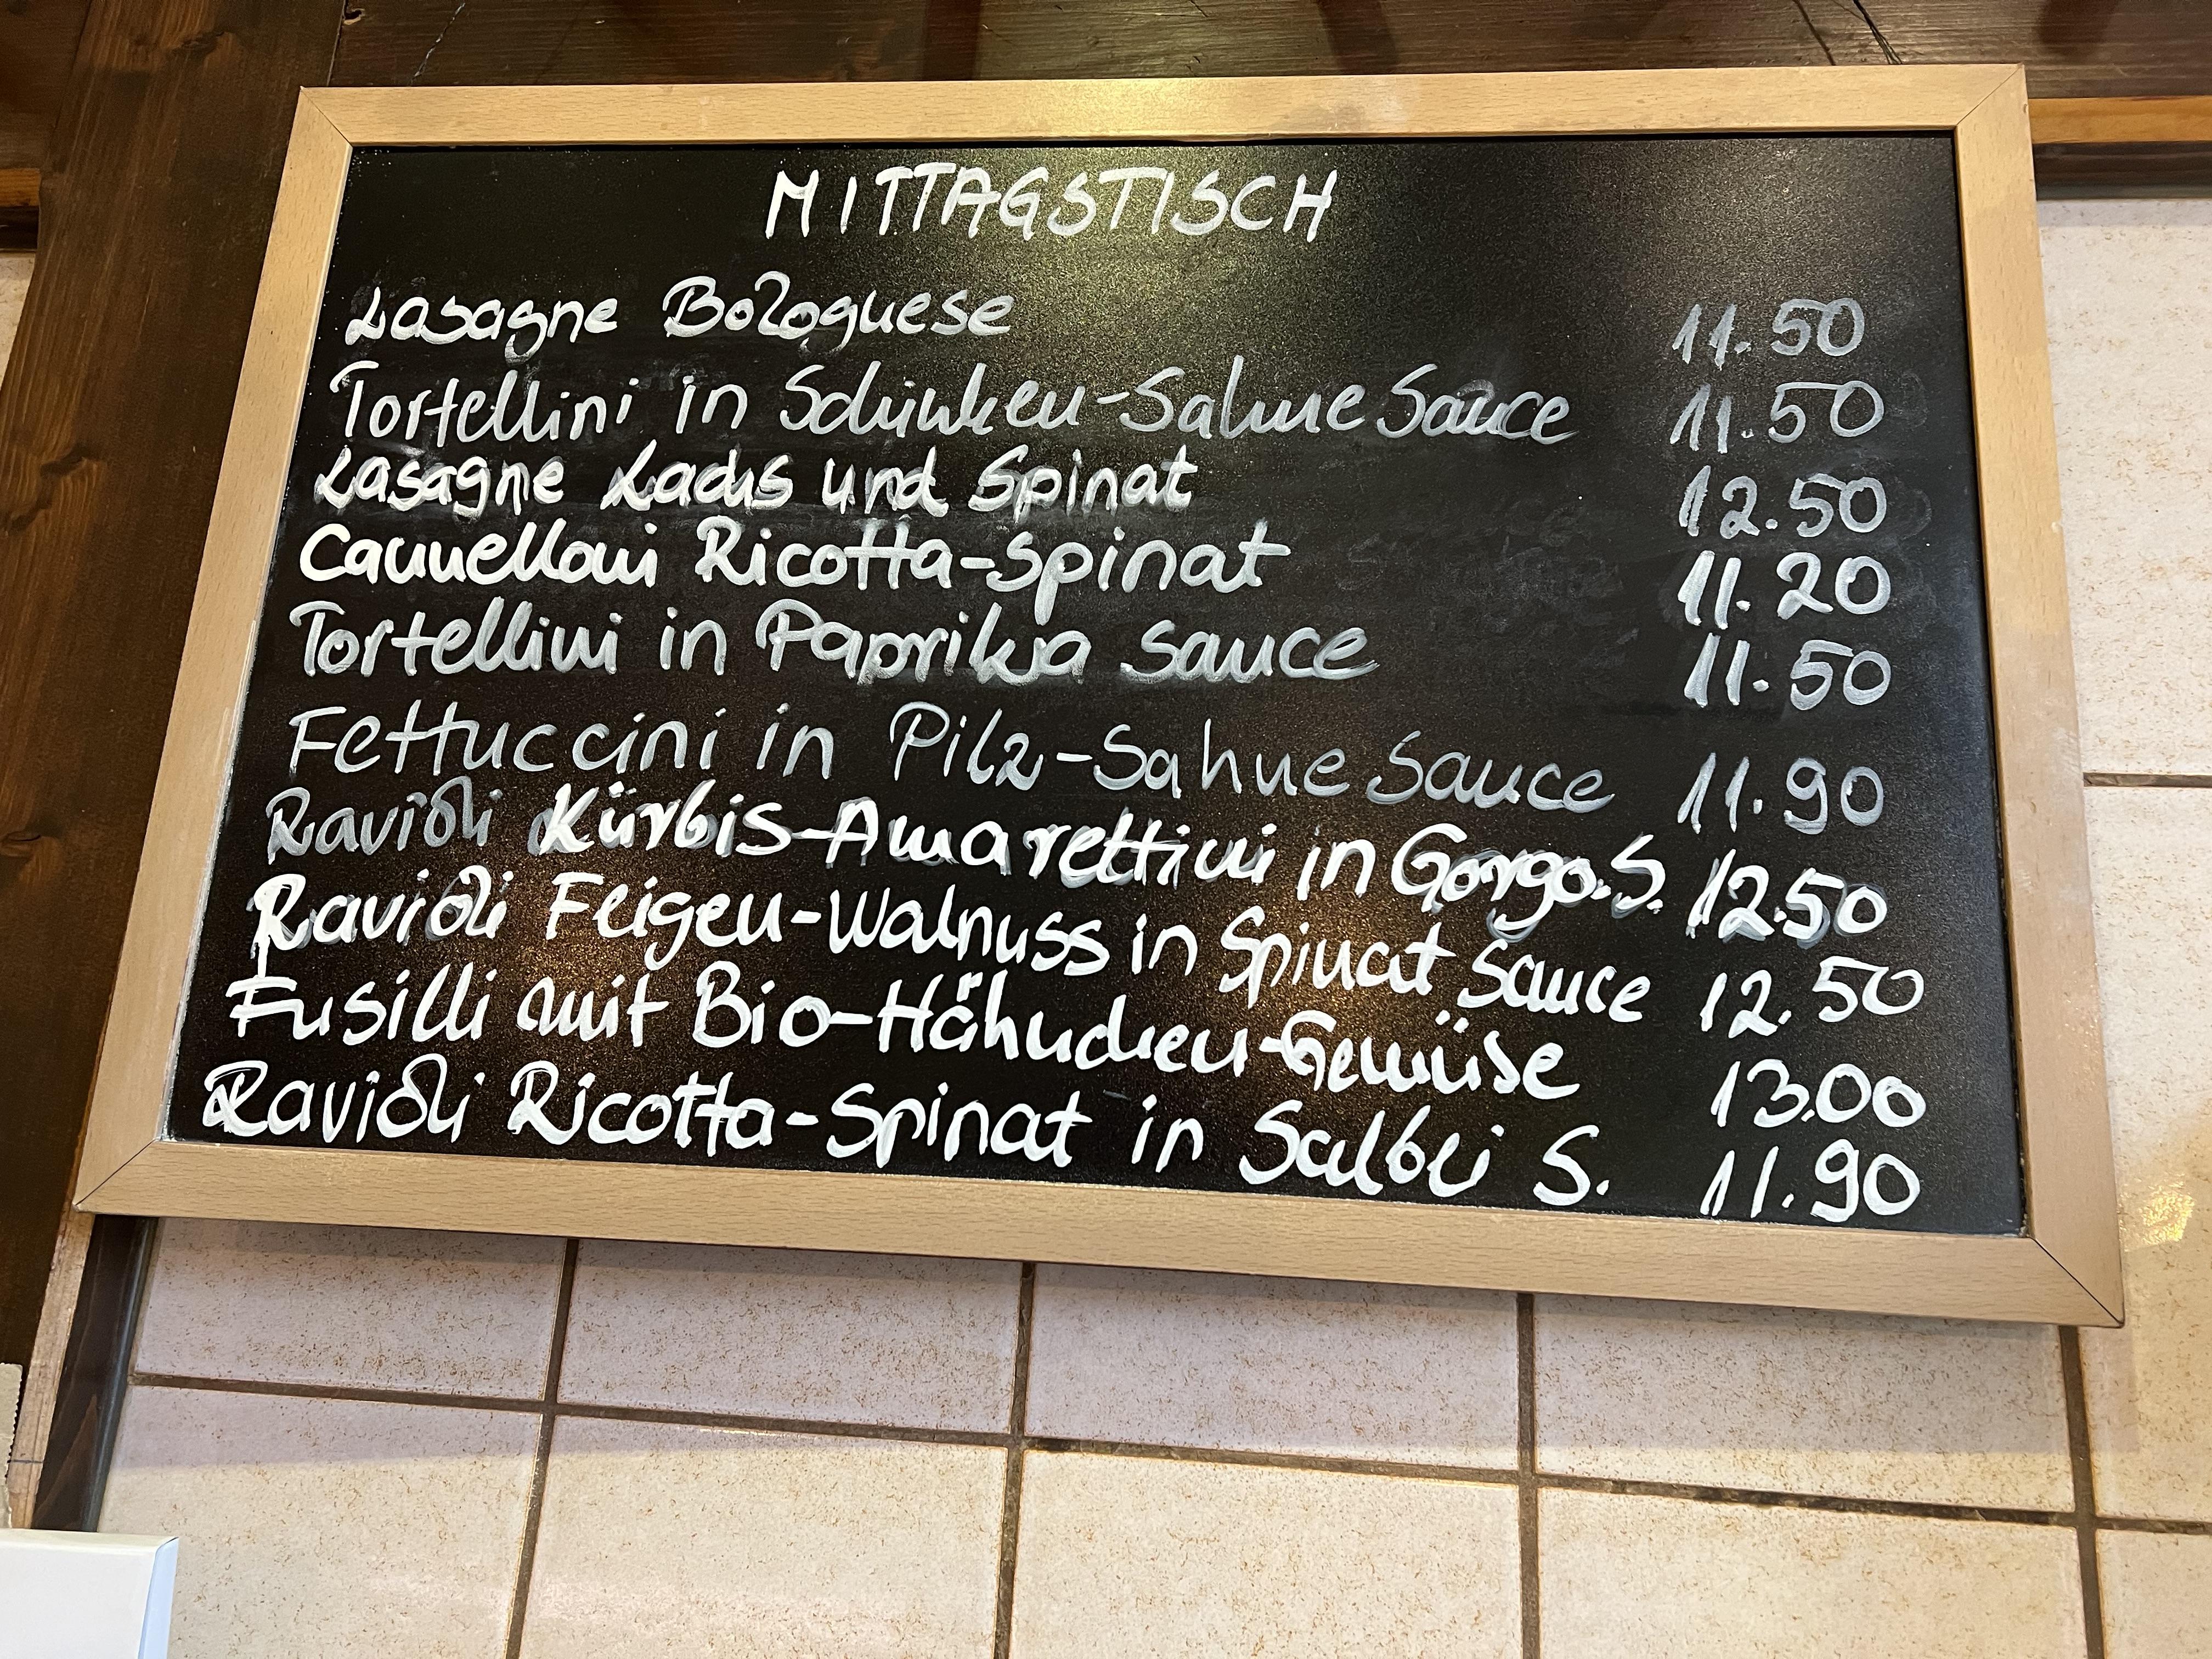 MITTAGSTISCH
Lasagne Bolognese 11.50
Tortellini in Schinken-Sahne Sauce 11.50
Lasagne Lachs und Spinat 12.50
Cannelloni Ricotta-Spinat 11.20
Tortellini in Paprika Sauce 11.50
Fettuccini in Pilz-Sahne Sauce 11.90
Ravioli Kürbis-Amarettini in Gorgo.S. 12.50
Ravioli Feigen-Walnuss in Spinat Sauce 12.50
Fusilli mit Bio-Hähnchen-Gemüse 13.00
Ravioli Ricotta-Spinat in Salbei S. 11.90